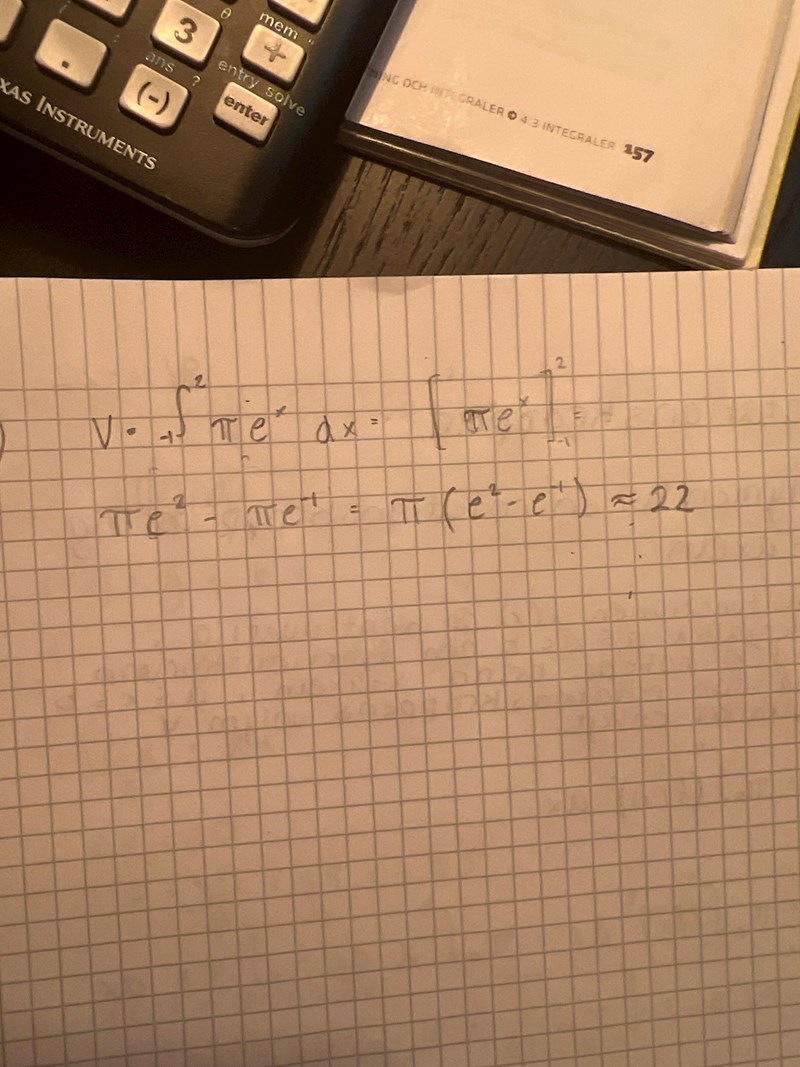 θ
mem "
3
+
ans ?
entry solve
.
(-)
enter
XAS INSTRUMENTS
NING OCH INTEGRALER 4.3 INTEGRALER 157
) V = ∫₋₁² π e^x dx = [π e^x]₋₁² =
π e² - π e⁻¹ = π (e² - e⁻¹) ≈ 22